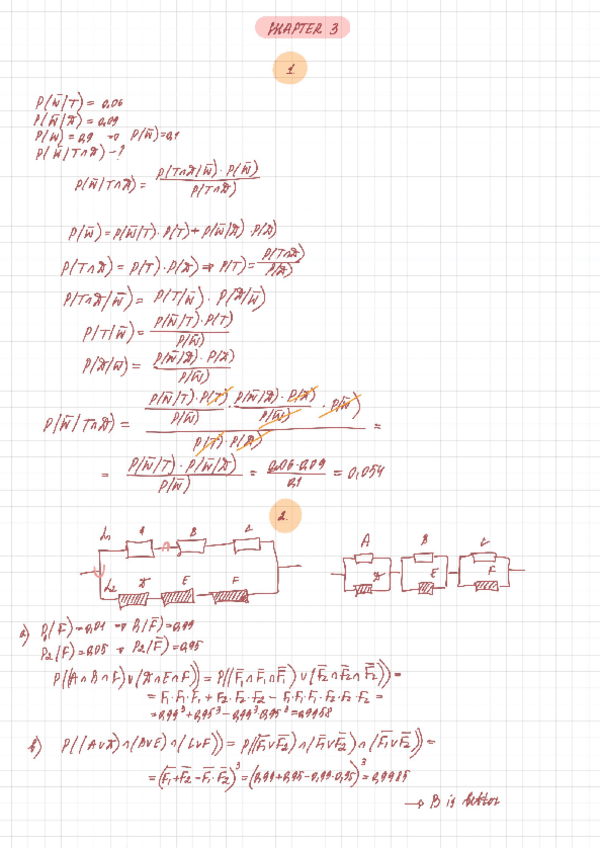 CHAPTER 3
1
P(W̄|T) = 0,06
P(W̄|D) = 0,09
P(W) = 0,9 ⇒ P(W̄)=0,1
P(W̄|T∩D) - ?
P(W̄|T∩D) = P(T∩D|W̄) · P(W̄) / P(T∩D)
P(W̄) = P(W̄|T) · P(T) + P(W̄|D) · P(D)
P(T∩D) = P(T) · P(D) ⇒ P(T) = P(T∩D) / P(D)
P(T∩D|W̄) = P(T|W̄) · P(D|W̄)
P(T|W̄) = P(W̄|T) · P(T) / P(W̄)
P(D|W̄) = P(W̄|D) · P(D) / P(W̄)
P(W̄|T∩D) = P(W̄|T) · P(T) / P(W̄) · P(W̄|D) · P(D) / P(W̄) · P(W̄) / P(T) · P(D) =
= P(W̄|T) · P(W̄|D) / P(W̄) = 0,06 · 0,09 / 0,1 = 0,054
2.
L1 A B C
L2 D E F
A B C
D E F
a) P1(F) = 0,01 ⇒ P1(F̄) = 0,99
P2(F) = 0,05 ⇒ P2(F̄) = 0,95
P((A∩B∩C)∪(D∩E∩F)) = P((F̄1∩F̄1∩F̄1)∪(F̄2∩F̄2∩F̄2)) =
= F̄1·F̄1·F̄1 + F̄2·F̄2·F̄2 - F̄1·F̄1·F̄1·F̄2·F̄2·F̄2 =
= 0,99³ + 0,95³ - 0,99³·0,95³ = 0,9958
b) P((A∪D)∩(B∪E)∩(C∪F)) = P((F̄1∪F̄2)∩(F̄1∪F̄2)∩(F̄1∪F̄2)) =
= (F̄1+F̄2-F̄1·F̄2)³ = (0,99+0,95-0,99·0,95)³ = 0,9985
→ B is better